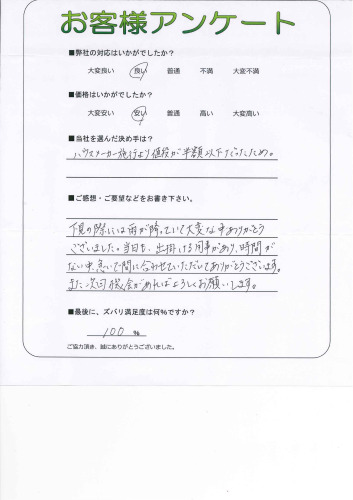 お客様アンケート
■弊社の対応はいかがでしたか？
大変良い 良い 普通 不満 大変不満
■価格はいかがでしたか？
大変安い 安い 普通 高い 大変高い
■当社を選んだ決め手は？
ハウスメーカー施行より値段が半額以下だったため。
■ご感想・ご要望などをお書き下さい。
下見の際には雨が降っていて大変な中ありがとう
ございました。当日も、出掛ける用事があり、時間が
ない中、急いで間に合わせていただいてありがとうございます。
また次回機会があればよろしくお願いします。
■最後に、ズバリ満足度は何%ですか？
100 %
ご協力頂き、誠にありがとうございました。